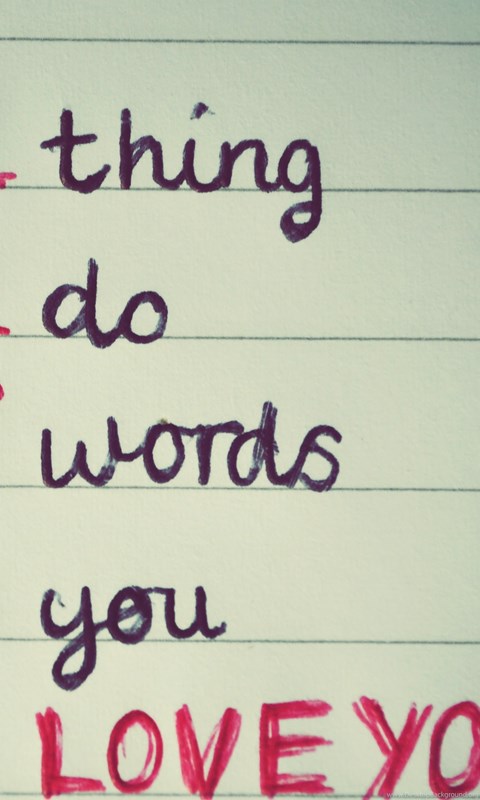 thing
do
words
you
LOVE YO